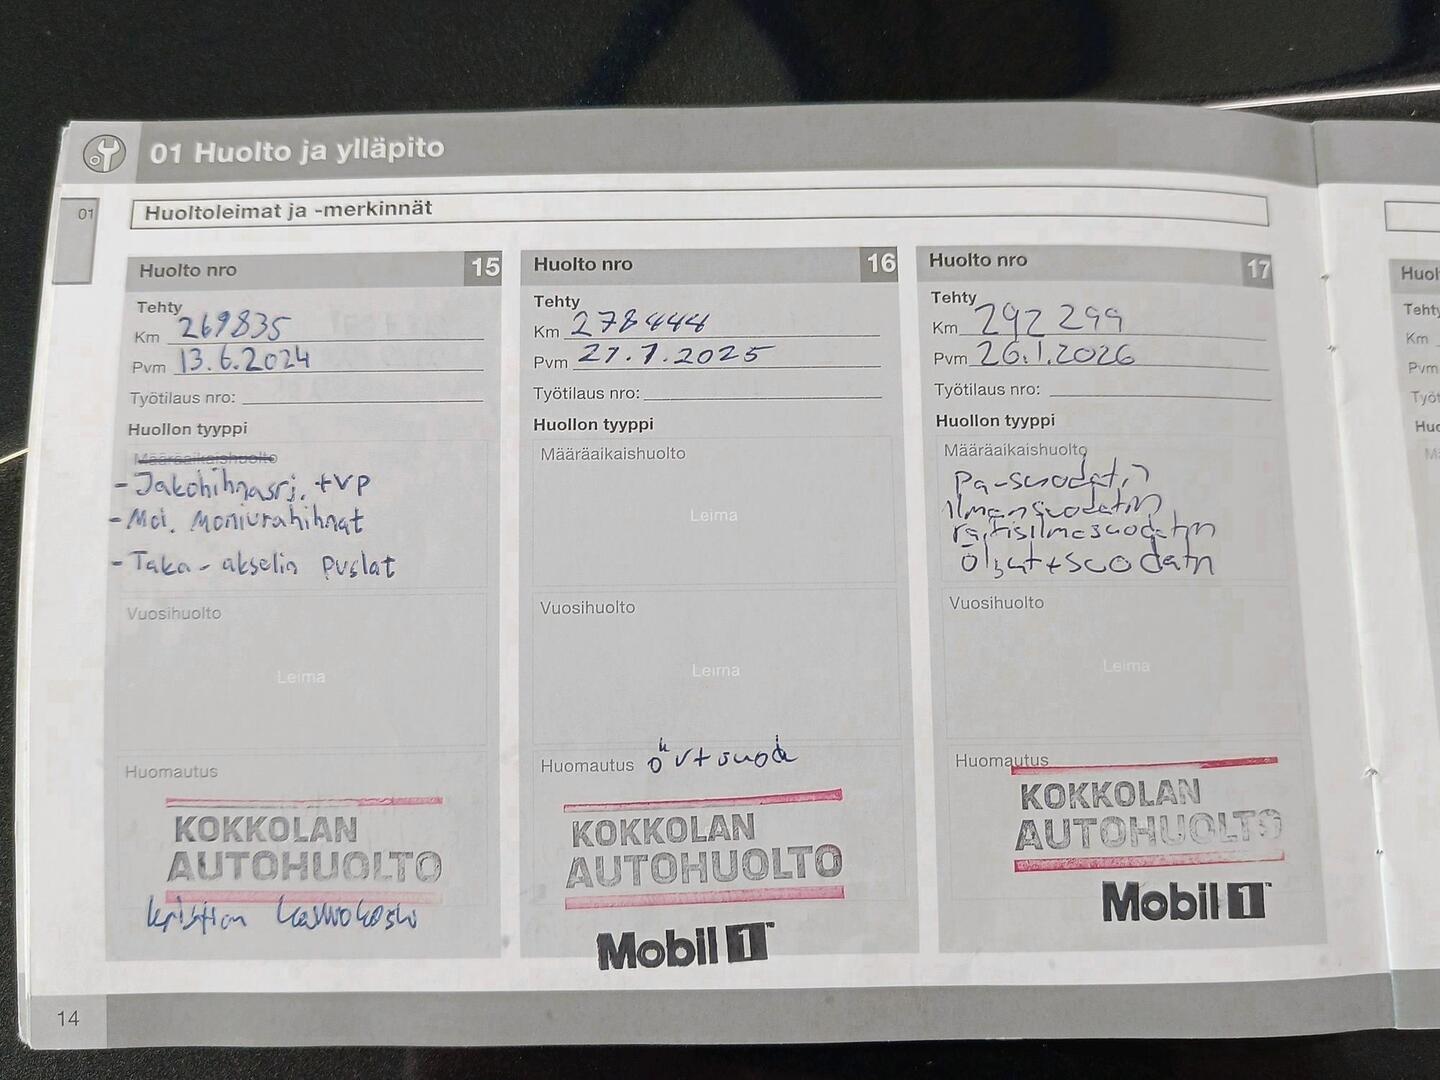 01 Huolto ja ylläpito
01
Huoltoleimat ja -merkinnät
Huolto nro 15
Tehty
Km 269835
Pvm 13.6.2024
Työtilaus nro:
Huollon tyyppi
Määräaikaishuolto
- Jakohihnasrj. +VP
- Mol. Moniurahihnat
- Taka-akselin puslat
Vuosihuolto
Leima
Huomautus
KOKKOLAN
AUTOHUOLTO
Huolto nro 16
Tehty
Km 278444
Pvm 27.1.2025
Työtilaus nro:
Huollon tyyppi
Määräaikaishuolto
Leima
Vuosihuolto
Leima
Huomautus
KOKKOLAN
AUTOHUOLTO
Mobil 1™
Huolto nro 17
Tehty
Km 292 299
Pvm 26.1.2026
Työtilaus nro:
Huollon tyyppi
Määräaikaishuolto
Pa-suodatin
Ilmansuodatin
raitisilmasuodatin
öljyt + suodatin
Vuosihuolto
Leima
Huomautus
KOKKOLAN
AUTOHUOLTO
Mobil 1™
14
Tehty
Km
Pvm